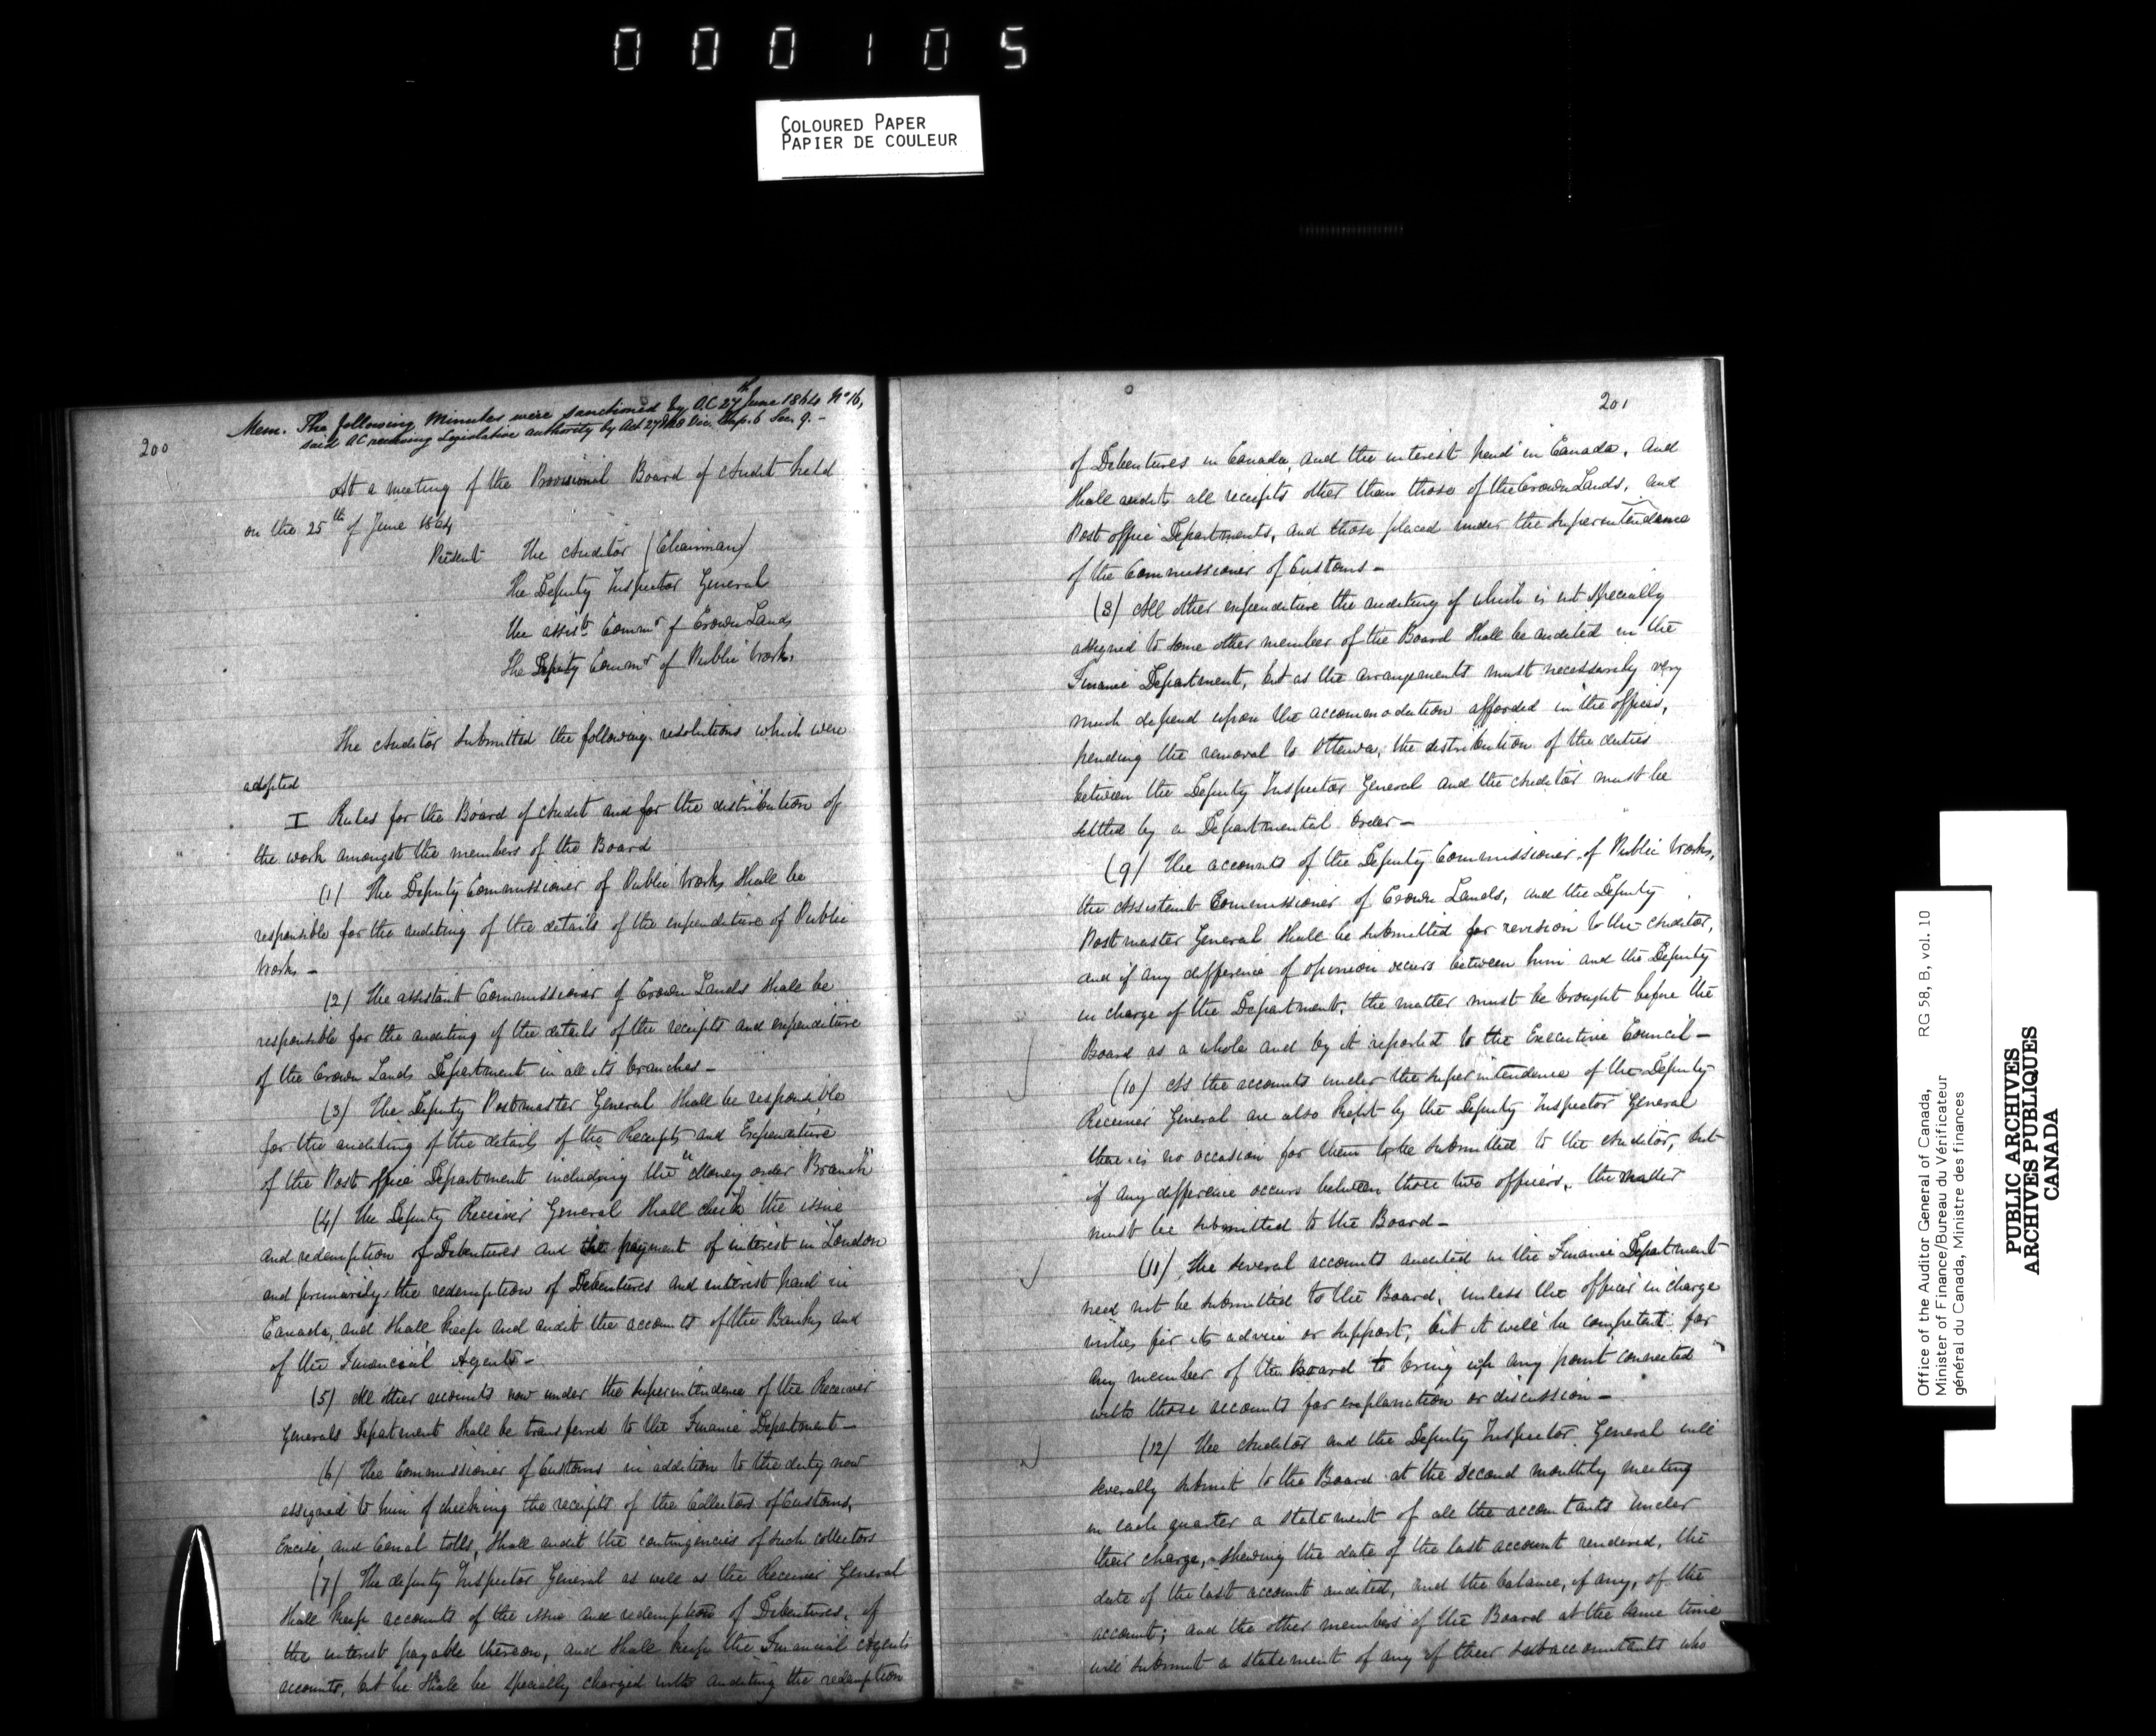 000105
COLOURED PAPER
PAPIER DE COULEUR
Mem. The following Minutes were sanctioned by O.C. 27th June 1864 No 16,
said O.C. receiving Legislative authority by Act 27 & 28 Vic. Chap. 6 Sec. 9. -
200
At a meeting of the Provisional Board of Audit held
on the 25th of June 1864
Present The Auditor (Chairman)
The Deputy Inspector General
The assist. Commr of Crown Lands
The Deputy Commr of Public Works
The Auditor submitted the following resolutions which were
adopted
I Rules for the Board of Audit and for the distribution of
the work amongst the members of the Board
(1) The Deputy Commissioner of Public Works shall be
responsible for the auditing of the details of the expenditure of Public
Works -
(2) The assistant Commissioner of Crown Lands shall be
responsible for the auditing of the details of the receipts and expenditure
of the Crown Lands Department in all its branches -
(3) The Deputy Postmaster General shall be responsible
for the auditing of the details of the Receipts and Expenditure
of the Post office Department including the "Money order Branch"
(4) The Deputy Receiver General shall check the issue
and redemption of Debentures and the payment of interest in London
and primarily the redemption of Debentures and interest paid in
Canada, and shall keep and audit the accounts of the Banks and
of the Financial Agents -
(5) All other accounts now under the superintendence of the Receiver
Generals Department shall be transferred to the Finance Department -
(6) The Commissioner of Customs in addition to the duty now
assigned to him of checking the receipts of the Collectors of Customs,
Excise, and Canal tolls, shall audit the contingencies of such collectors
(7) The deputy Inspector General as well as the Receiver General
shall keep accounts of the issue and redemption of Debentures, of
the interest payable thereon, and shall keep the Financial Agents
accounts, but he shall be specially charged with auditing the redemption
201
of Debentures in Canada, and the interest paid in Canada, and
shall audit all receipts other than those of the Crown Lands, and
Post office Departments, and those placed under the superintendence
of the Commissioner of Customs -
(8) All other expenditure the auditing of which is not specially
assigned to some other member of the Board shall be audited in the
Finance Department, but as the arrangements must necessarily very
much depend upon the accommodation afforded in the offices,
pending the removal to Ottawa, the distribution of the duties
between the Deputy Inspector General and the Auditor must be
settled by a Departmental order -
(9) The accounts of the Deputy Commissioner of Public Works,
the Assistant Commissioner of Crown Lands, and the Deputy
Postmaster General shall be submitted for revision to the Auditor,
and if any difference of opinion occurs between him and the Deputy
in charge of the Department, the matter must be brought before the
Board as a whole and by it reported to the Executive Council -
(10) As the accounts under the superintendence of the Deputy
Receiver General are also kept by the Deputy Inspector General
there is no occasion for them to be submitted to the Auditor, but
if any difference occurs between those two officers, the matter
must be submitted to the Board -
(11) The several accounts audited in the Finance Department
need not be submitted to the Board, unless the officer in charge
wishes for its advice or support, but it will be competent for
any member of the Board to bring up any point connected
with those accounts for explanation or discussion -
(12) The Auditor and the Deputy Inspector General will
severally submit to the Board at the second monthly meeting
in each quarter a statement of all the accountants under
their charge, shewing the date of the last account rendered, the
date of the last account audited, and the balance, if any, of the
account; and the other members of the Board at the same time
will submit a statement of any of their subaccountants who
Office of the Auditor General of Canada, RG 58, B, vol. 10
Minister of Finance/Bureau du Vérificateur
général du Canada, Ministre des finances
PUBLIC ARCHIVES
ARCHIVES PUBLIQUES
CANADA